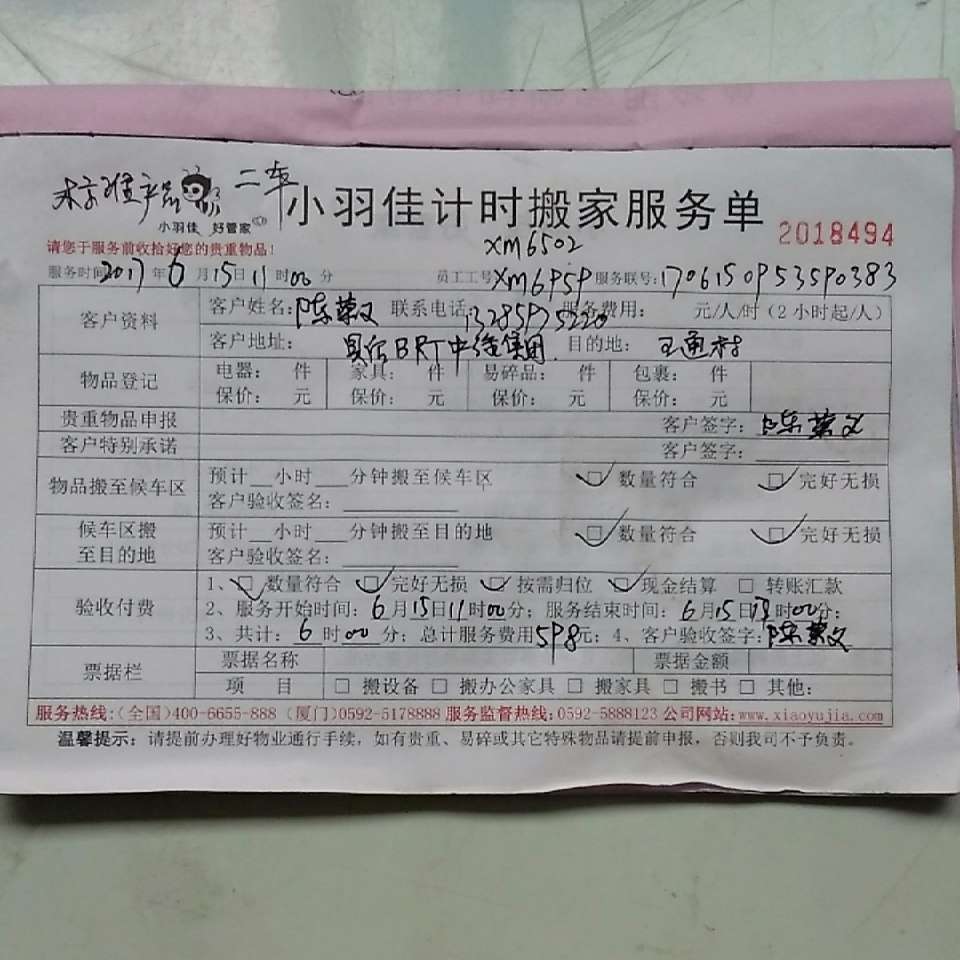 标准产品 二车
小羽佳 好管家
小羽佳计时搬家服务单
2018494
请您于服务前收拾好您的贵重物品!
XM6502
服务时间 2017年6月15日11时00分 员工工号 XM6959 服务联号:1706150953590383
客户资料
客户姓名:陈荣文 联系电话: 服务费用: 元/人/时(2小时起/人)
客户地址: BRT中 集团 目的地: 王通村
物品登记
电器: 件 家具: 件 易碎品: 件 包裹: 件
保价: 元 保价: 元 保价: 元 保价: 元
贵重物品申报 客户签字:陈荣文
客户特别承诺 客户签字:
物品搬至候车区
预计__小时___分钟搬至候车区 ☑数量符合 ☑完好无损
客户验收签名:
候车区搬至目的地
预计__小时___分钟搬至目的地 ☑数量符合 ☑完好无损
客户验收签名:
验收付费
1、☑数量符合 ☑完好无损 ☑按需归位 ☑现金结算 □转账汇款
2、服务开始时间:6月15日11时00分;服务结束时间:6月15日13时00分;
3、共计:6时00分;总计服务费用598元;4、客户验收签字:陈荣文
票据栏
票据名称 票据金额
项 目 □搬设备 □搬办公家具 □搬家具 □搬书 □其他:
服务热线:(全国)400-6655-888 (厦门)0592-5178888 服务监督热线:0592-5888123 公司网站:www.xiaoyujia.com
温馨提示:请提前办理好物业通行手续,如有贵重、易碎或其它特殊物品请提前申报,否则我司不予负责。